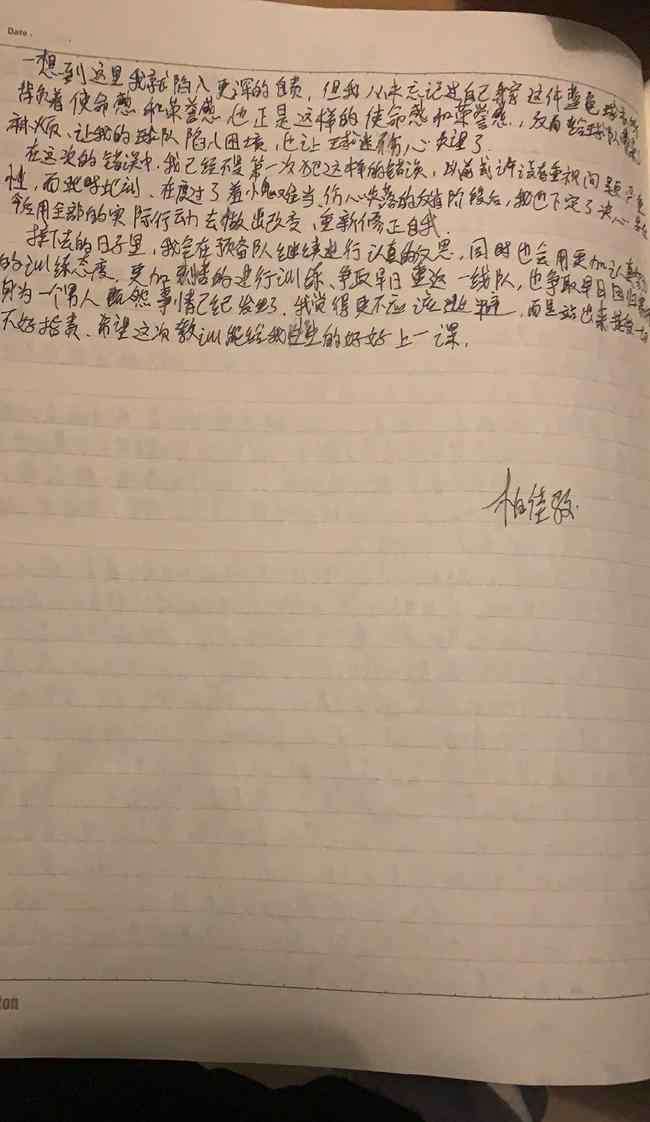 Date.
一想到这里我就陷入更深的自责,但我从未忘记过自己身穿这件蓝色球衣
背负着使命感和荣誉感也正是这样的使命感和荣誉感,反而给球队
麻烦、让我的球队陷入困境,也让球迷伤心失望了
在这次的错误中,我已经不是第一次犯这样的错误,以前或许没有重视问题严重
性,而此时此刻、在度过了羞愧难当、伤心失落的反省阶段后,我也下定了决心
用全部的实际行动去做出改变,重新修正自我.
接下去的日子里,我会在预备队继续进行认真的反思,同时也会用更加认真
的训练态度,更加的进行训练、争取早日重返一线队,也争取早日回归
身为一个男人既然事情已经发生了.我觉得更不应该逃避,而是站出来
不好指责、希望这次教训能给我的好好上一课.
柏佳骏
ton